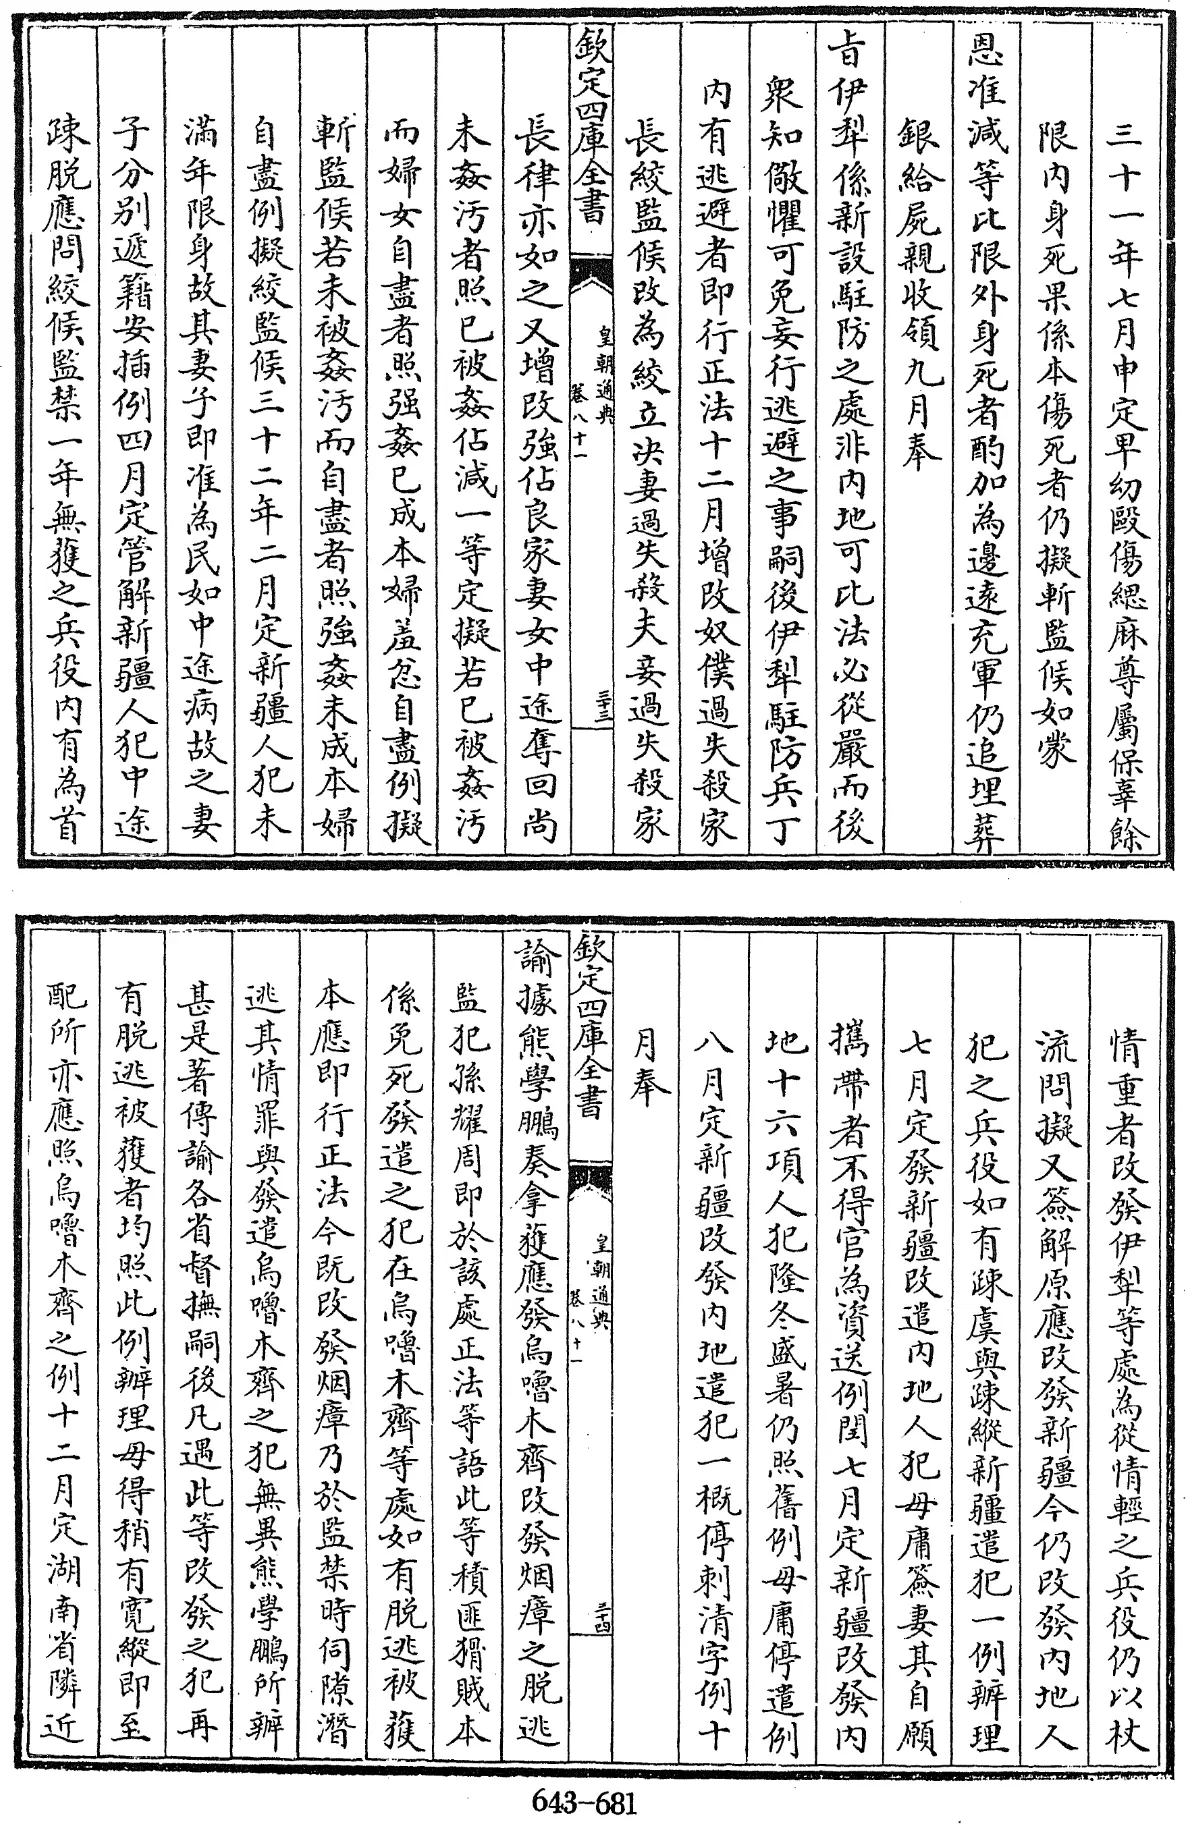 三十一年七月申定卑幼毆傷緦麻尊屬保辜餘
限内身死果係本傷死者仍擬斬監候如蒙
恩准減等比限外身死者酌加為邊遠充軍仍追埋葬
銀給屍親收領九月奉
㫖伊犁係新設駐防之處非内地可比法必從嚴而後
衆知儆懼可免妄行逃避之事嗣後伊犁駐防兵丁
内有逃避者即行正法十二月增改奴僕過失殺家
長絞監候改為絞立決妻過失殺夫妾過失殺家
欽定四庫全書
皇朝通典
卷八十一
三十三
長律亦如之又增改強佔良家妻女中途奪回尚
未姦汚者照已被姦佔減一等定擬若已被姦汚
而婦女自盡者照强姦已成本婦羞忿自盡例擬
斬監候若未被姦汚而自盡者照強姦未成本婦
自盡例擬絞監候三十二年二月定新疆人犯未
滿年限身故其妻子即准為民如中途病故之妻
子分别遞籍安插例四月定管解新疆人犯中途
疎脱應問絞候監禁一年無獲之兵役内有為首
情重者改發伊犁等處為從情輕之兵役仍以杖
流問擬又簽解原應改發新疆今仍改發内地人
犯之兵役如有疎虞與疎縱新疆遣犯一例辦理
七月定發新疆改遣内地人犯毋庸簽妻其自願
攜帶者不得官為資送例閏七月定新疆改發内
地十六項人犯隆冬盛暑仍照舊例毋庸停遣例
八月定新疆改發内地遣犯一概停刺清字例十
月奉
欽定四庫全書
皇朝通典
卷八十一
三十四
諭據熊學鵬奏拿獲應發烏嚕木齊改發烟瘴之脱逃
監犯孫耀周即於該處正法等語此等積匪猾賊本
係免死發遣之犯在烏嚕木齊等處如有脱逃被獲
本應即行正法今既改發烟瘴乃於監禁時伺隙潛
逃其情罪與發遣烏嚕木齊之犯無異熊學鵬所辦
甚是著傳諭各省督撫嗣後凡遇此等改發之犯再
有脱逃被獲者均照此例辦理毋得稍有寛縱即至
配所亦應照烏嚕木齊之例十二月定湖南省隣近
643-681